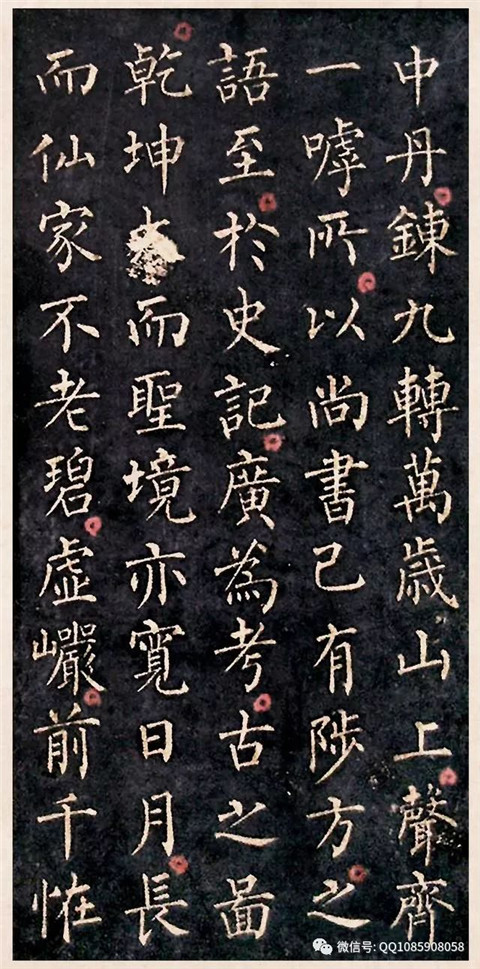 中丹鍊九轉萬歲山上聲齊
一嘑所以尚書已有陟方之
語至於史記廣為考古之啚
乾坤大而聖境亦寬日月長
而仙家不老碧虛巗前千恠
微信号: QQ1085908058